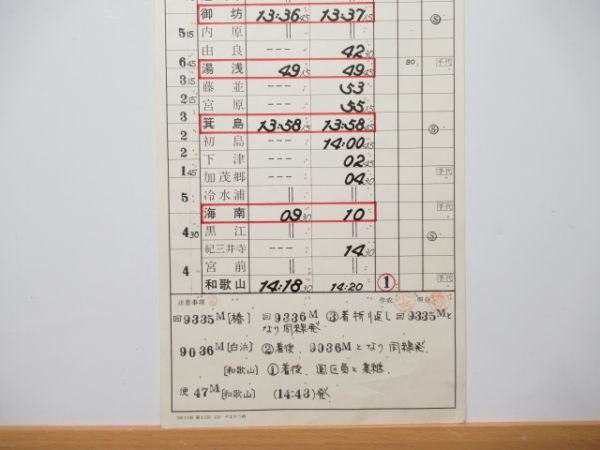 御坊 13:36 45 13:37 45
5 15 内原 || ||
由良 --- 42 30
6 45 湯浅 49 15 49 45 80 千代
3 15 藤並 --- 53
2 15 宮原 --- 55 15
3 箕島 13:58 15 13:58 45 Ⓢ
2 初島 --- 14:00 45
2 下津 --- 02 45
1 45 加茂郷 --- 04 30 千代
5 冷水浦 || ||
海南 09 30 10 千代
4 30 黒江 || || Ⓢ
紀三井寺 --- 14 30
4 宮前 || ||
和歌山 14:18 30 14:20 ①
注意事項 作成 照合
回9335M[椿] 回9336M ③着折り返し 回9335Mと
なり同線発
9036M[白浜] ②着後、9036Mとなり同線発
[和歌山] ①着後、鳳区員と乗継
便47M[和歌山] (14:43)発